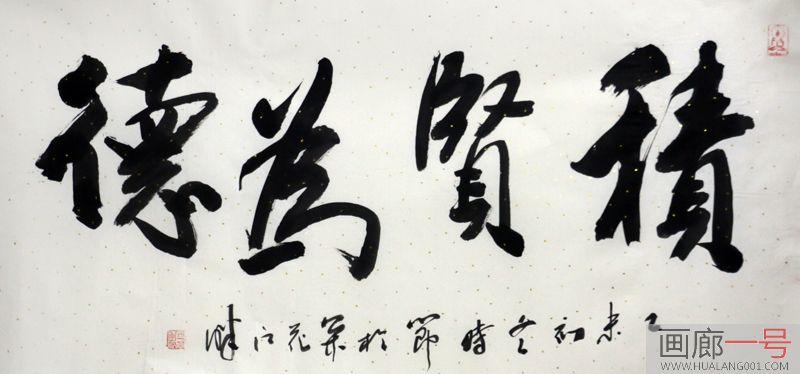 積賢為德
乙未初冬時節於
画廊一号
WWW.HUALANG001.COM